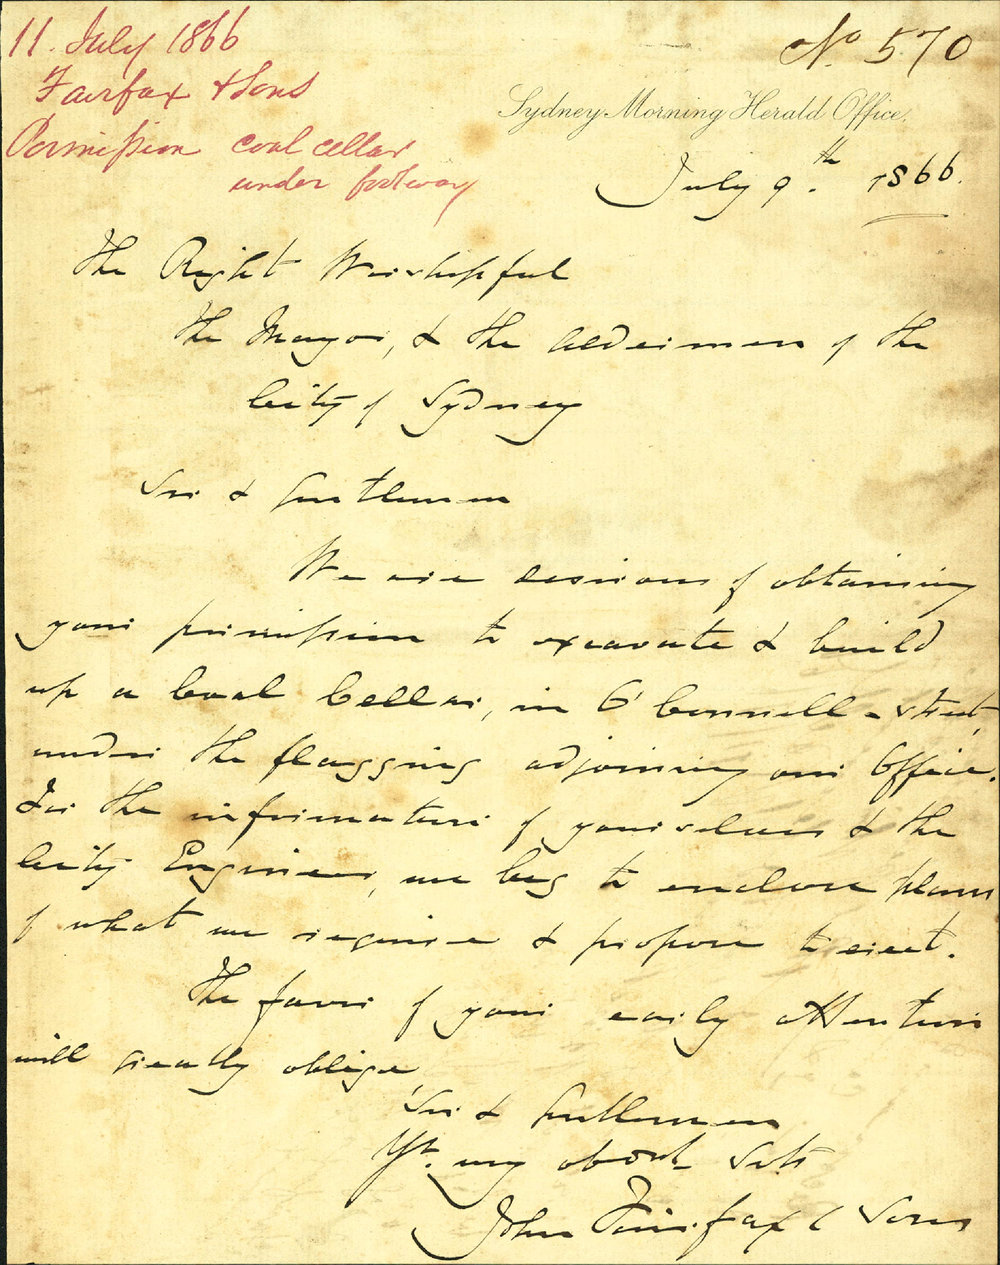 11. July 1866
Fairfax & Sons
Permission coal cellar
under footway
No 570
Sydney Morning Herald Office,
July 9th. 1866.
The Right Worshipful
The Mayor, & the Aldermen of the
City of Sydney
Sir & Gentlemen
We are desirous of obtaining
your permission to excavate & build
up a Coal Cellar, in O'Connell-street,
under the flagging adjoining our Office.
For the information of yourselves & the
City Engineer, we beg to enclose plans
of what we require & propose to erect.
The favor of your early attention
will greatly oblige,
Sir & Gentlemen
Yr. very obedt Svts
John Fairfax & Sons